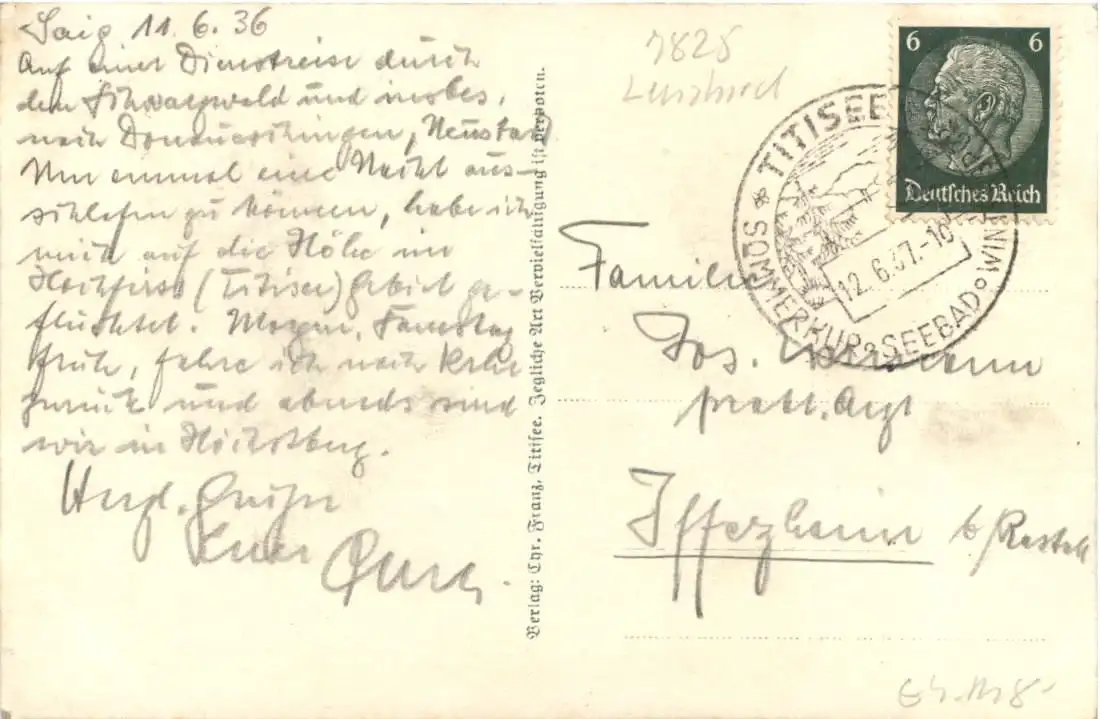 Saig 11.6.36
Auf einer Dienstreise durch
den Schwarzwald und insbes.
nach Donaueschingen, Neustadt
Um einmal eine Nacht aus-
schlafen zu können, habe ich
mich auf die Höhe im
Hochfirst (Titisee) Gebiet ge-
flüchtet. Morgen, Samstag
früh, fahre ich nach
zurück und abends sind
wir in
Herzl. Grüße
Euer
Verlag: Chr. Franz, Titisee. Jegliche Art Vervielfältigung ist verboten.
7825
Lenzkirch
6 6
Deutsches Reich
* TITISEE
12.6.37.-10
SOMMERKUR & SEEBAD
Familie
Jos.
prakt. Arzt
Iffezheim b/Rastatt